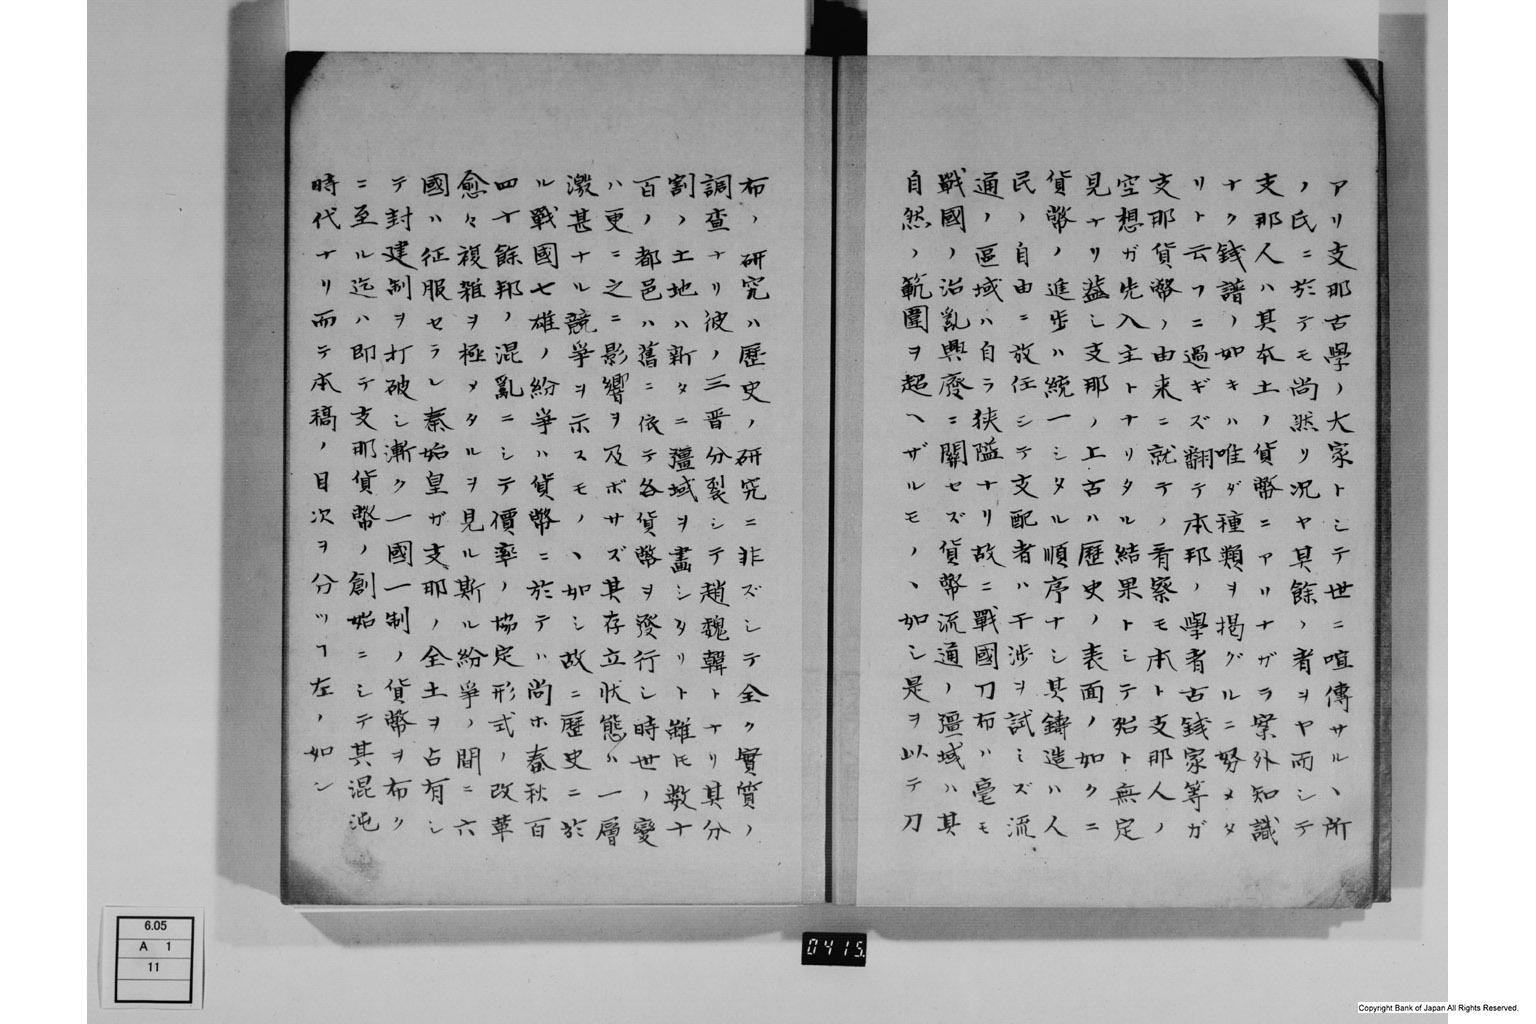 アリ支那古學ノ大家トシテ世ニ喧傳サルヽ所
ノ氏ニ於テモ尚然リ況ヤ其餘ノ者ヲヤ而シテ
支那人ハ其本土ノ貨幣ニアリナガラ案外知識
ナク錢譜ノ如キハ唯ダ種類ヲ掲グルニ努メタ
リト云フニ過ギズ翻テ本邦ノ學者古錢家等ガ
支那貨幣ノ由来ニ就テノ看察モ本ト支那人ノ
空想ガ先入主トナリタル結果トシテ殆ト無定
見ナリ蓋シ支那ノ上古ハ歴史ノ表面ノ如クニ
貨幣ノ進歩ハ統一シタル順序ナシ其鑄造ハ人
民ノ自由ニ放任シテ支配者ハ干渉ヲ試ミズ流
通ノ區域ハ自ラ狭隘ナリ故ニ戰國刀布ハ毫モ
戰國ノ治亂興廢ニ關セズ貨幣流通ノ疆域ハ其
自然ノ範圍ヲ超ヘザルモノヽ如シ是ヲ以テ刀
布ノ研究ハ歴史ノ研究ニ非ズシテ全ク實質ノ
調査ナリ彼ノ三晋分裂シテ趙魏韓トナリ其分
割ノ土地ハ新タニ疆域ヲ畫シタリト雖モ数十
百ノ都邑ハ舊ニ依テ各貨幣ヲ發行シ時世ノ變
ハ更ニ之ニ影響ヲ及ボサズ其存立状態ハ一層
激甚ナル競爭ヲ示スモノヽ如シ故ニ歴史ニ於
ル戰國七雄ノ紛爭ハ貨幣ニ於テハ尚ホ春秋百
四十餘邦ノ混亂ニシテ價率ノ協定形式ノ改革
愈々複雜ヲ極メタルヲ見ル斯ル紛爭ノ間ニ六
國ハ征服セラレ秦始皇ガ支那ノ全土ヲ占有シ
テ封建制ヲ打破シ漸ク一國一制ノ貨幣ヲ布ク
ニ至ル迄ハ即チ支那貨幣ノ創始ニシテ其混沌
時代ナリ而テ本稿ノ目次ヲ分ツヿ左ノ如シ
6.05
A 1
11
0415
Copyright Bank of Japan All Rights Reserved.